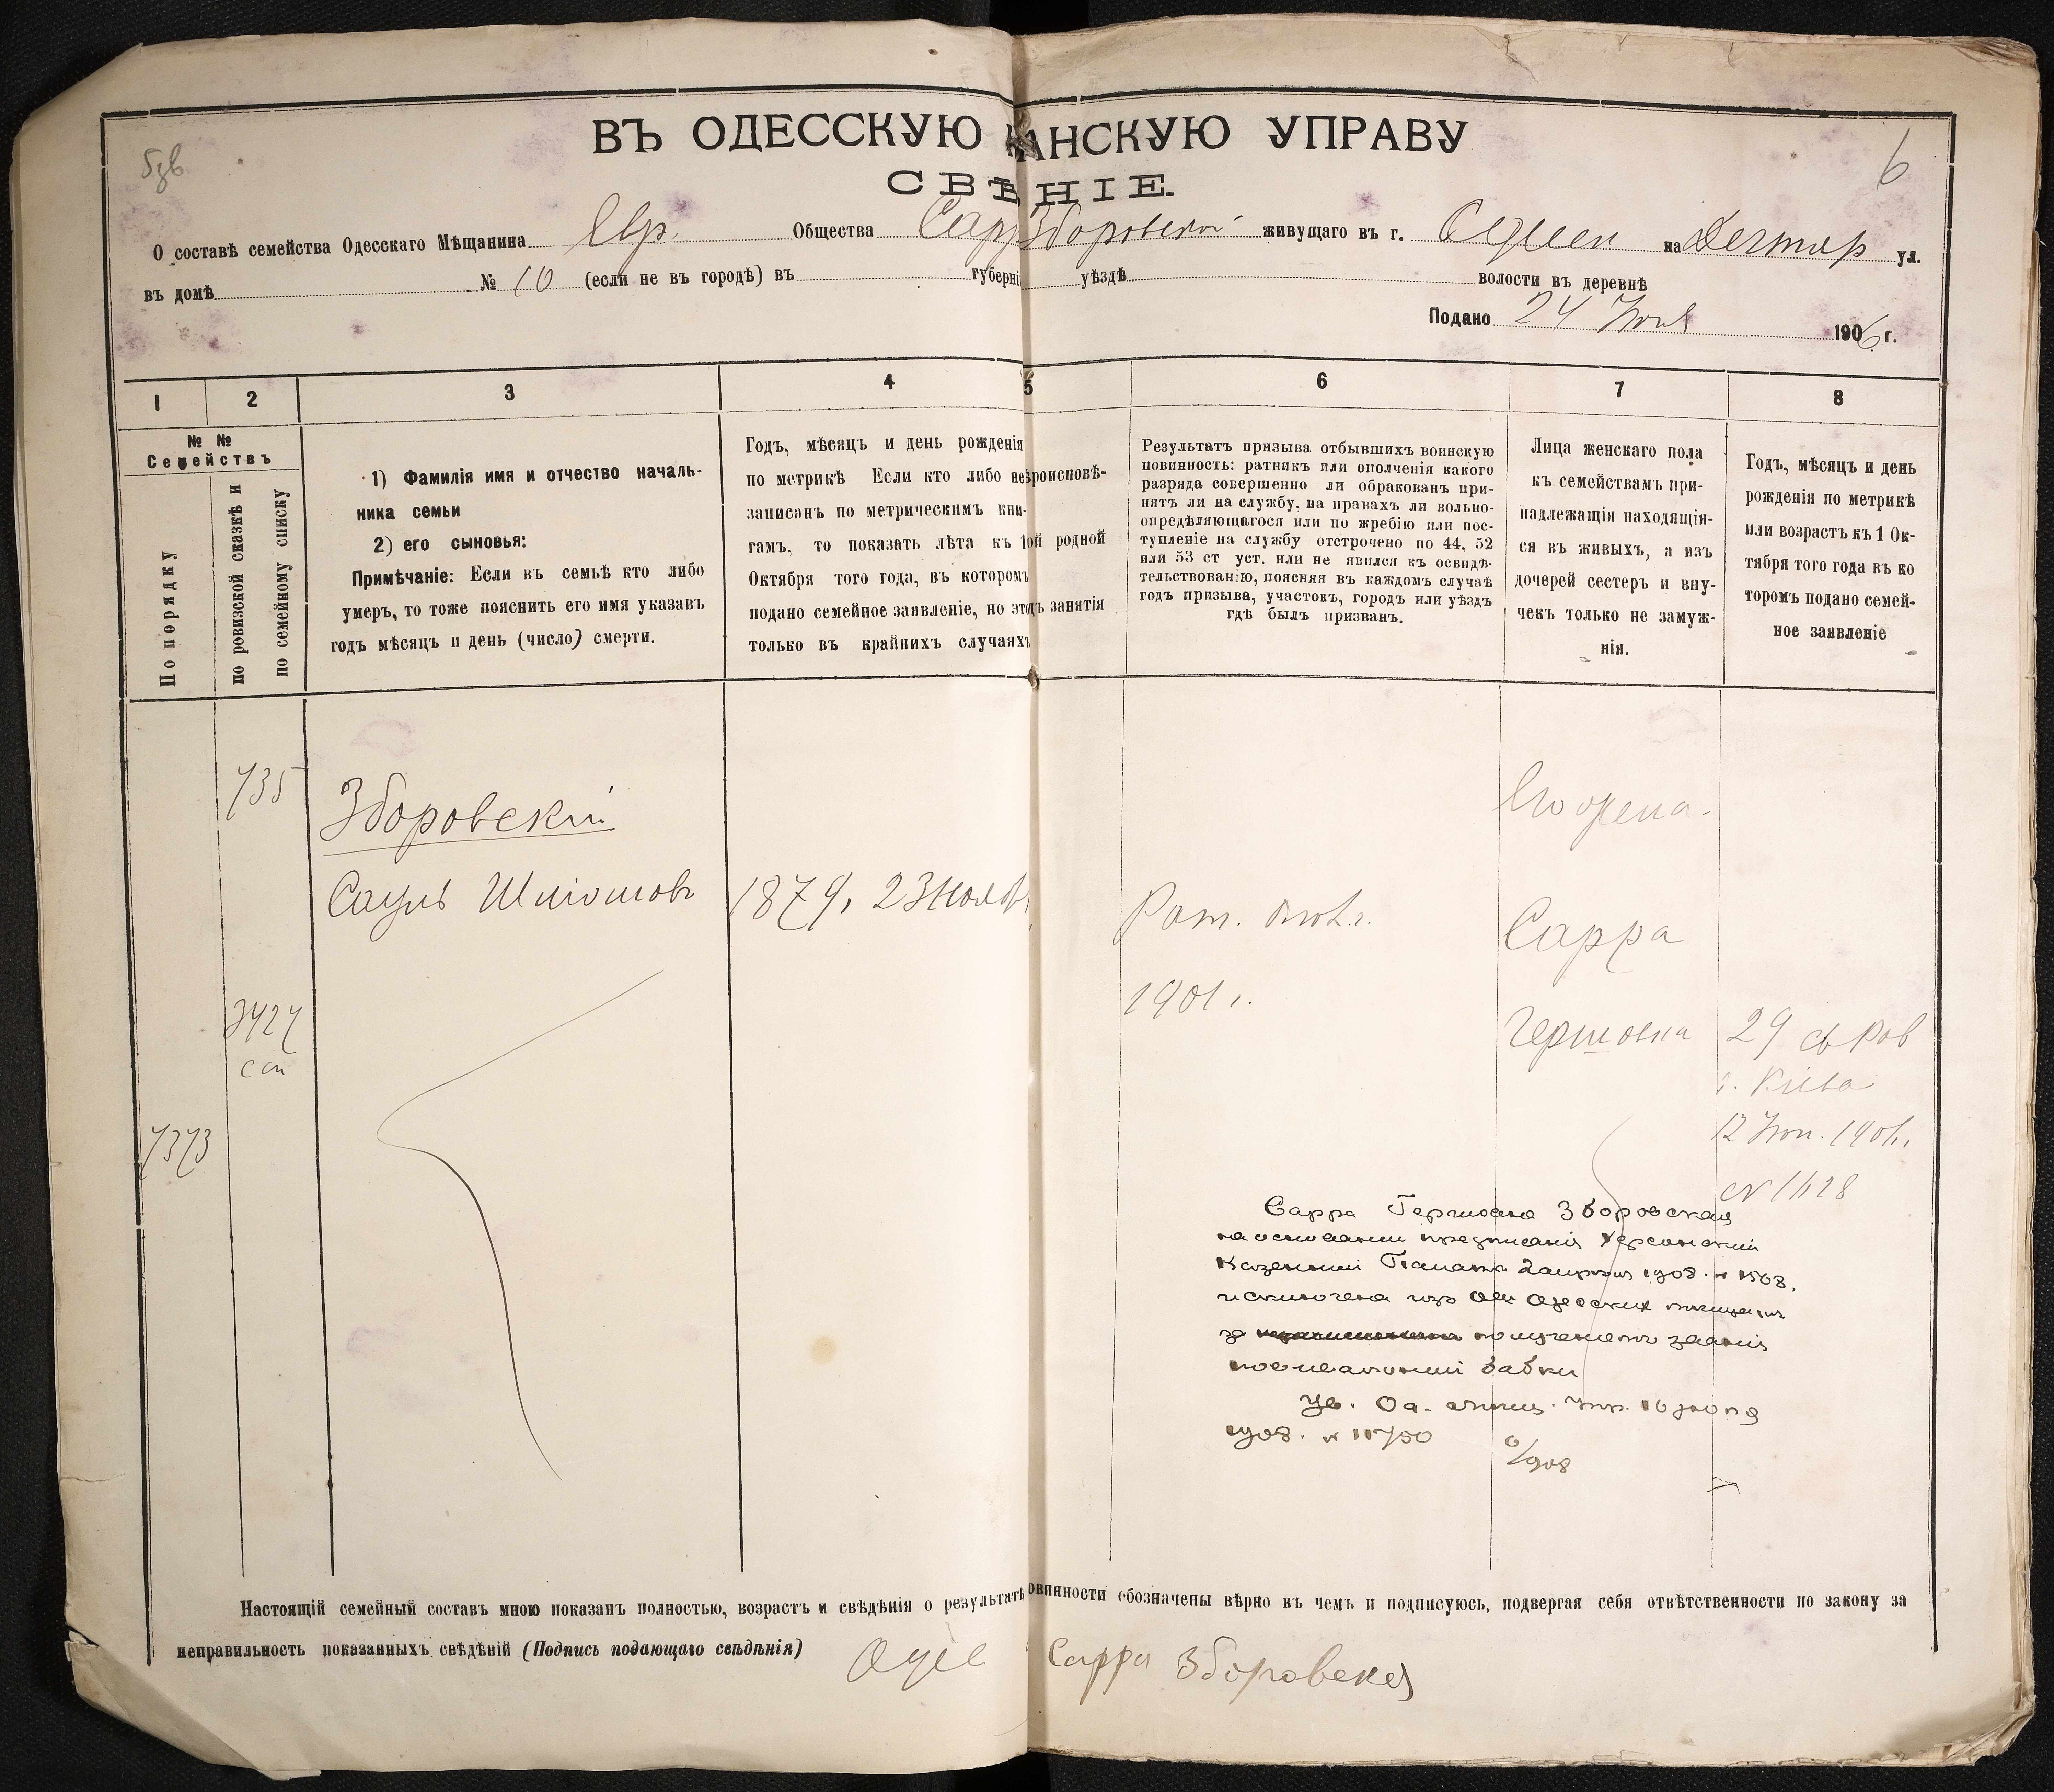 ВЪ ОДЕССКУЮ АНСКУЮ УПРАВУ
6
СВѢНІЕ.
О составѣ семейства Одесскаго Мѣщанина Евр. Общества Зборовской живущаго въ г. Одессѣ на Дегтяр ул.
въ домѣ № 10 (если не въ городѣ) въ губерні уѣздѣ волости въ деревнѣ
Подано 24 190 6 г.
1 2 3 4 5 6 7 8
№ №
Семействъ
По порядку
по ревизской сказкѣ и
по семейному списку
1) Фамилія имя и отчество началь-
ника семьи
2) его сыновья:
Примѣчаніе: Если въ семьѣ кто либо
умеръ, то тоже пояснить его имя указавъ
годъ мѣсяцъ и день (число) смерти.
Годъ, мѣсяцъ и день рожденія
по метрикѣ Если кто либо не
записанъ по метрическимъ кни-
гамъ, то показать лѣта къ 1
Октября того года, въ которомъ
подано семейное заявленіе, но это
только въ крайнихъ случаяхъ
роисповѣ-
ой родной
дъ занятія
Результатъ призыва отбывшихъ воинскую
повинность: ратникъ или ополченія какого
разряда совершенно ли обракованъ при-
нятъ ли на службу, на правахъ ли вольно-
опредѣляющагося или по жребію или пос-
тупленіе на службу отсрочено по 44, 52
или 53 ст уст. или не явился къ освидѣ-
тельствованію, поясняя въ каждомъ случаѣ
годъ призыва, участокъ, городъ или уѣздъ
гдѣ былъ призванъ.
Лица женскаго пола
къ семействамъ при-
надлежащія находящія-
ся въ живыхъ, а изъ
дочерей сестеръ и вну-
чекъ только не замуж-
нія.
Годъ, мѣсяцъ и день
рожденія по метрикѣ
или возрастъ къ 1 Ок-
тября того года въ ко
торомъ подано семей-
ное заявленіе
735
Зборовскій
Его жена
Сауль 1879, 23 Ноябр
Рат. опол.
Сарра
1901 г.
3424
Гершовна
29
г. Кіева
7373
Сарра Гершовна Зборовская
на основаніи предписанія Херсонской
Казенной Палаты 2 апрѣля 1908. №
исключена изъ Одесских мѣщанъ
за полученіемъ званія
повивальной бабки
1908. № 11750
/908
Настоящій семейный составъ мною показанъ полностью, возрастъ и свѣдѣнія о результатѣ овинности обозначены вѣрно въ чемъ и подписуюсь, подвергая себя отвѣтственности по закону за
неправильность показанныхъ свѣдѣній (Подпись подающаго свѣдѣнія) Сарра Зборовская